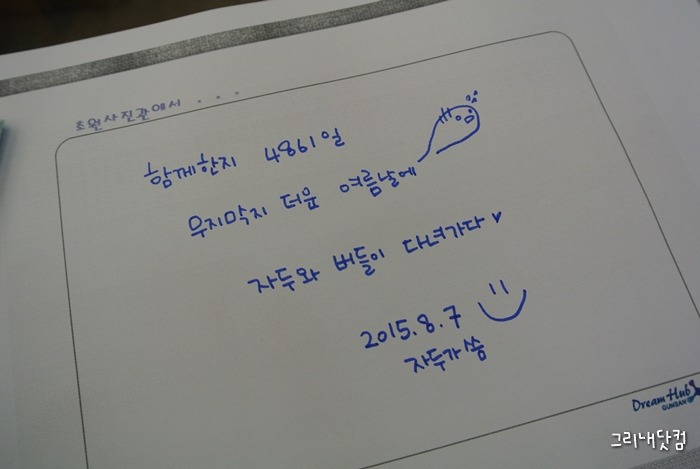 초원사진관에서 . . .
함께한지 4861일
무지막지 더운 여름날에
자두와 버들이 다녀가다 ♥
2015.8.7
자두가씀
Dream Hub
GUNSAN
그리내닷컴